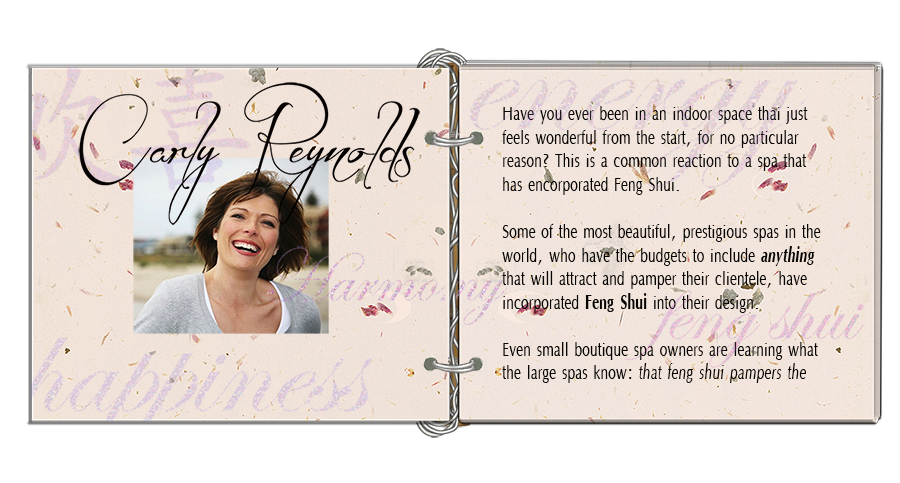 欢喜
Carly Reynolds
Harmony
happiness
energy
Have you ever been in an indoor space that just
feels wonderful from the start, for no particular
reason? This is a common reaction to a spa that
has encorporated Feng Shui.
Some of the most beautiful, prestigious spas in the
world, who have the budgets to include anything
that will attract and pamper their clientele, have
incorporated Feng Shui into their design.
feng shui
Even small boutique spa owners are learning what
the large spas know: that feng shui pampers the